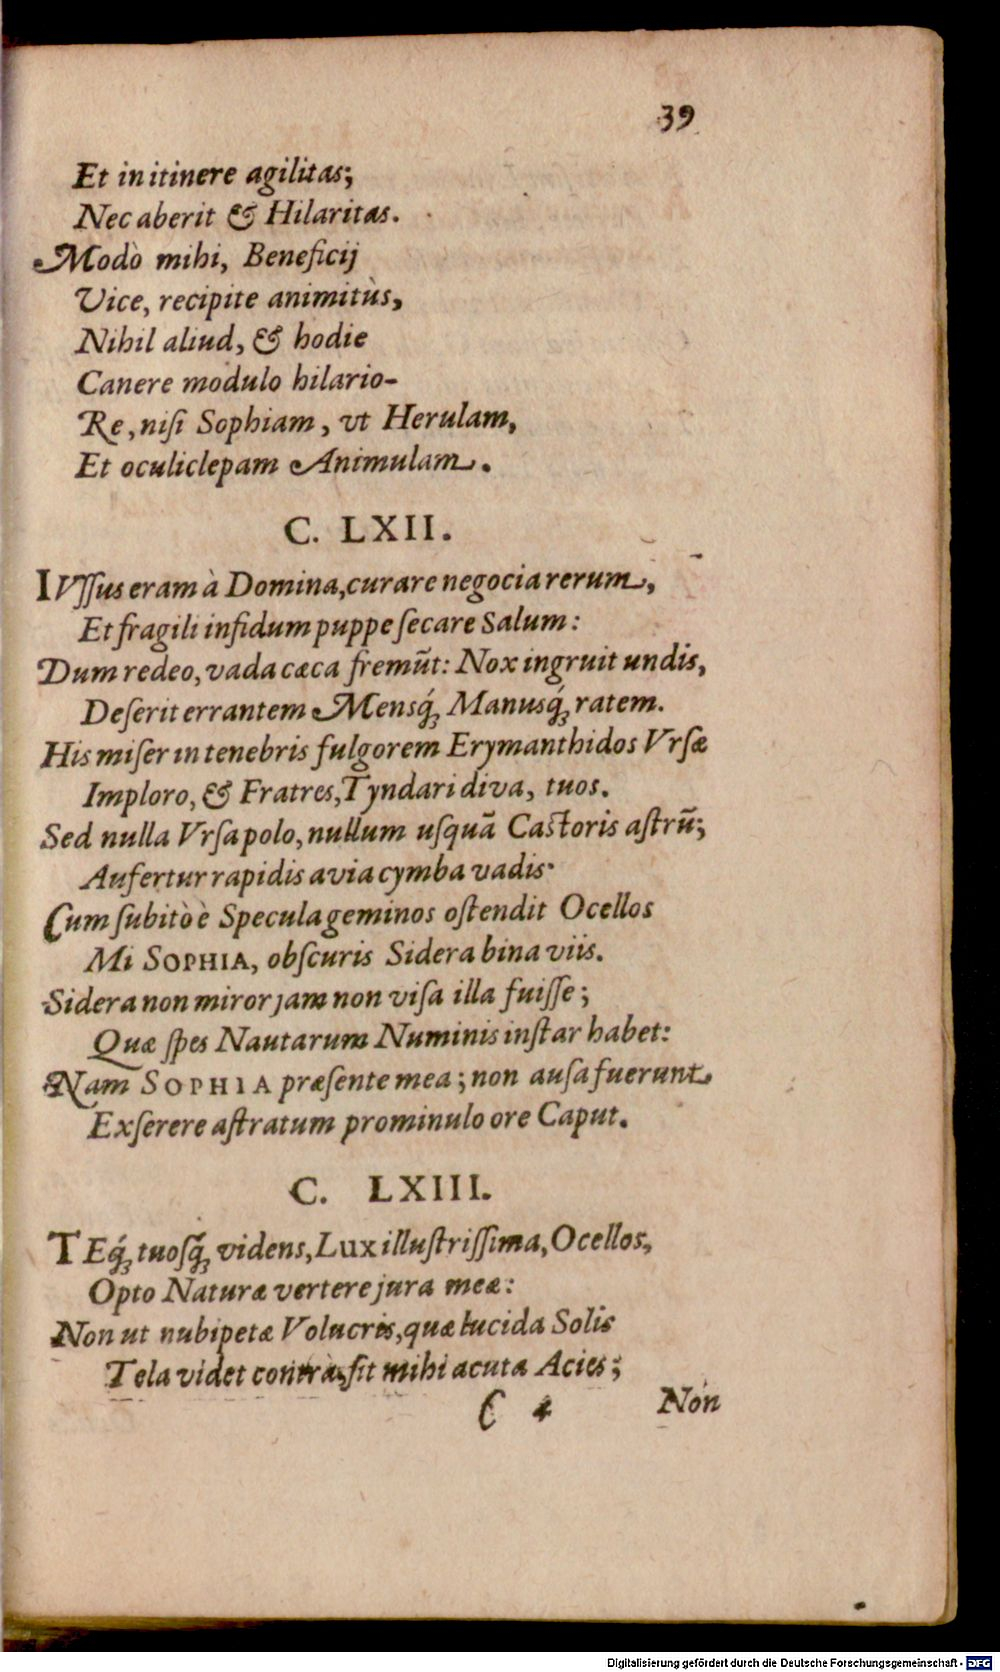 39
Et in itinere agilitas;
Nec aberit & Hilaritas.
Modò mihi, Beneficij
Vice, recipite animitùs,
Nihil aliud, & hodie
Canere modulo hilario-
Re, niſi Sophiam, vt Herulam,
Et oculiclepam Animulam.
C. LXII.
IVſſus eram à Domina, curare negocia rerum,
Et fragili infidum puppe ſecare Salum:
Dum redeo, vada cæca fremũt: Nox ingruit undis,
Deſerit errantem Mensq́; Manusq́; ratem.
His miſer in tenebris fulgorem Erymanthidos Vrſæ
Imploro, & Fratres, Tyndari diva, tuos.
Sed nulla Vrſa polo, nullum uſquã Caſtoris aſtrũ;
Aufertur rapidis avia cymba vadis.
Cum ſubitò è Specula geminos oſtendit Ocellos
Mi SOPHIA, obſcuris Sidera bina viis.
Sidera non miror jam non viſa illa fuiſſe;
Quæ ſpes Nautarum Numinis inſtar habet:
Nam SOPHIA præſente mea; non auſa fuerunt
Exſerere aſtratum prominulo ore Caput.
C. LXIII.
TEq́; tuoſq́; videns, Lux illuſtriſſima, Ocellos,
Opto Naturæ vertere jura meæ:
Non ut nubipetæ Volucris, quæ lucida Solis
Tela videt contrà, ſit mihi acuta Acies;
C 4 Non
Digitalisierung gefördert durch die Deutsche Forschungsgemeinschaft - DFG